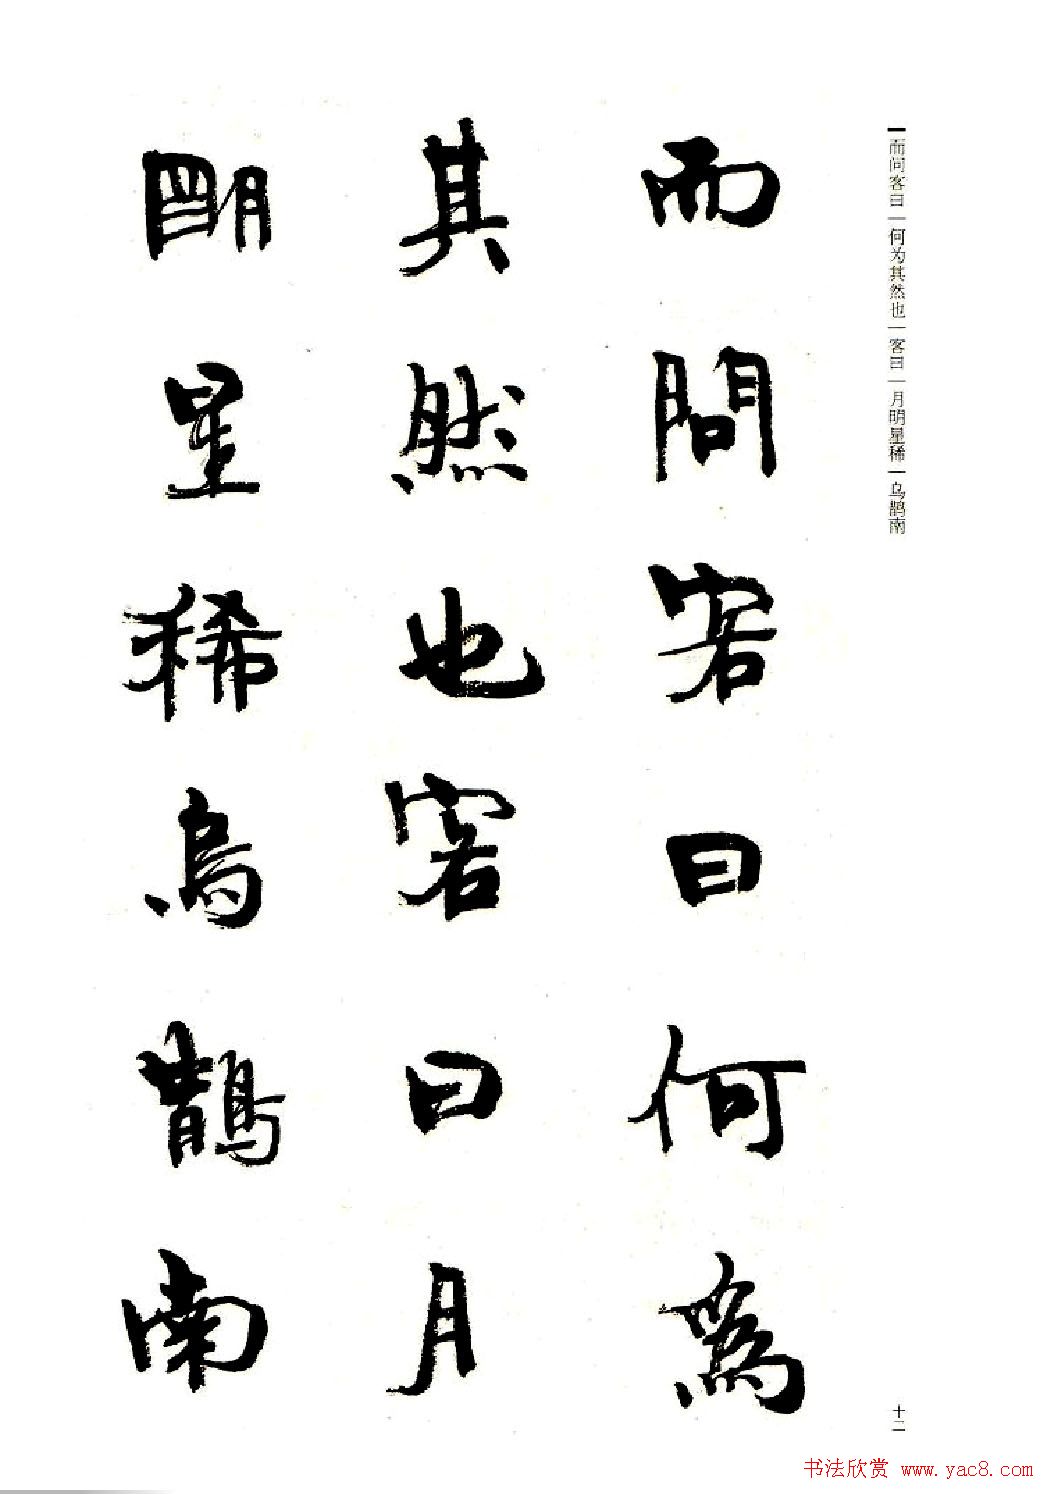 而问客曰｜何为其然也｜客曰｜月明星稀｜乌鹊南
而問客曰何為
其然也客曰月
明星稀烏鵲南
十二
书法欣赏 www.yac8.com